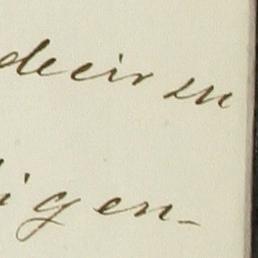 decir su
igen-